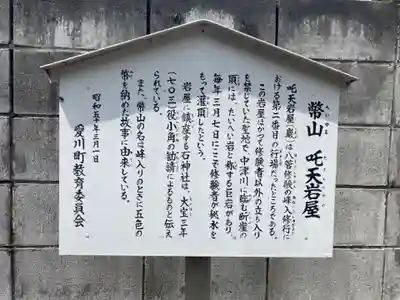 幣山 吒天岩屋
吒天岩屋(巖)は八菅修験の峰入修行に
おける第二番目の行場だったところである。
この岩屋はかつて修験者以外の立ち入り
を禁じていた聖地で、中津川に臨む断崖の
頂には、たいへい岩と称する巨岩があり、
毎年三月七日にここで修験者が秘水を
もって灌頂したという。
岩屋に鎮座する石神社は、大宝三年
(七〇三)役小角の勧請によるものと伝え
られている。
また、幣山の名は峰入りのときに五色の
幣を納めた故事に由来している。
昭和五十年三月一日
愛川町教育委員会